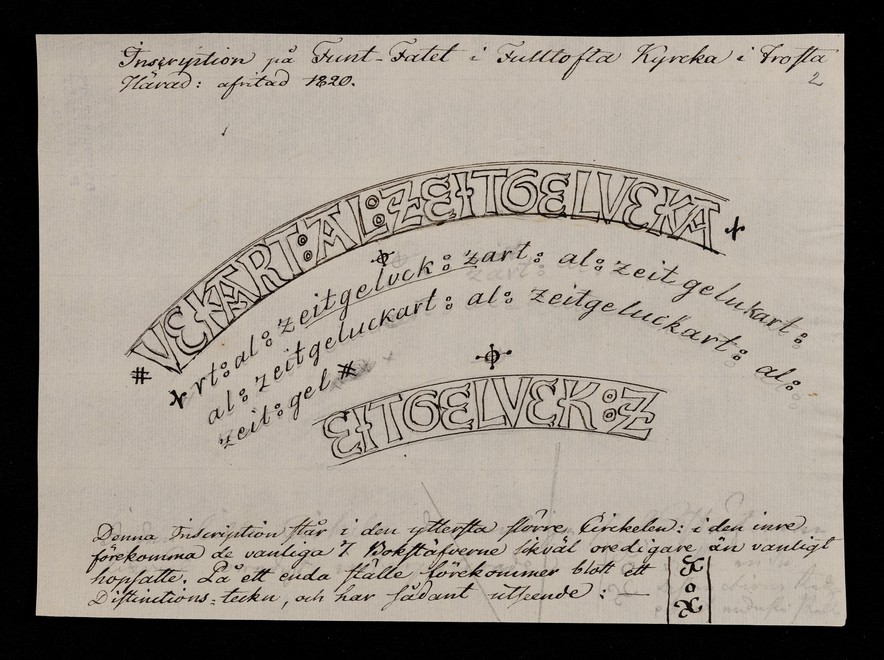 Inscription på Funt-Fatet i Fulltofta Kyrcka i Frosta
Härad: afritad 1820.
2
VEKART:AL:ZEITGELVEKA
rt: al: zeitgeluck: zart: al: zeit gelukart:
al: zeitgeluckart: al: zeitgeluckart: al:
zeit: gel
EITGELVEK:Z
Denna Inscription står i den yttersta större Circkelen: i den inre
förekomma de vanliga 7 Bokstäfverne likväl oredigare än vanligt
hopsatte. På ett enda ställe förekommer blott ett
Distinctions-tecken, och har sådant utseende: —